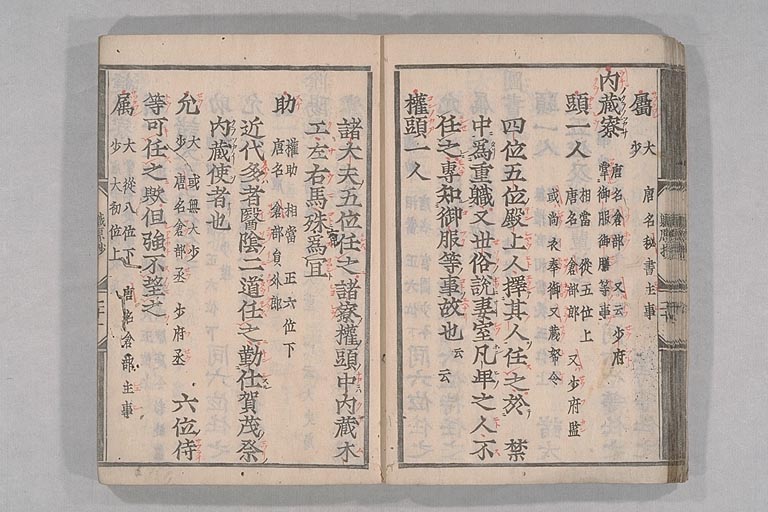 屬 大 少 唐名秘書主事
内蔵寮 唐名倉部 又云少府
掌御服御膳等事
頭一人 相當 從五位上
唐名 倉部郎 又少府監
或尚衣奉御又蔵帑令
四位五位殿上人擇其人任之於 禁
中為重職又世俗説妻室凡卑之人不
任之專知御服等事故也云云
權頭一人
諸大夫五位任之諸寮權頭中内蔵木
工左右馬殊為宜
助 權助 相當 正六位下
唐名 倉部員外郎
近代多者醫陰二道任之勤仕賀茂祭
内蔵使者也
允 大 或無大少
少 唐名倉部丞 少府丞 六位侍
等可任之歟但強不望之
属 大 從八位下 唐名倉部主事
少 大初位上